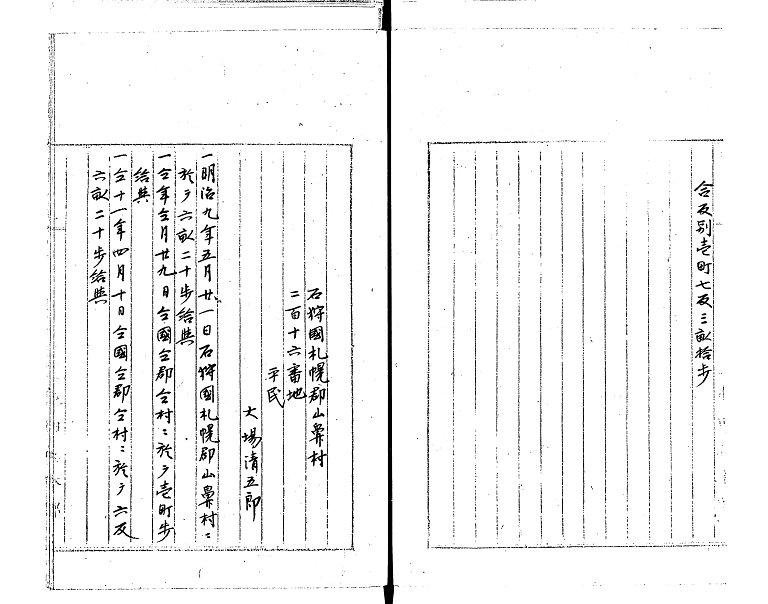 合反別壱町七反三畝拾歩
石狩國札幌郡山鼻村
二百十六番地
平民
大場清五郎
一明治九年五月廿一日石狩國札幌郡山鼻村ニ
於テ六畝二十歩給與
一仝年仝月廿九日仝國仝郡仝村ニ於テ壱町歩
給與
一仝十一年四月十日仝國仝郡仝村ニ於テ六反
六畝二十歩給與